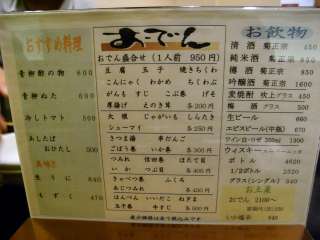 おすすめ料理
青柳酢の物 600
青柳ぬた
冷しトマト
あしたば
おひたし 500
生うに 840
もずく 470
おでん
おでん盛合せ(1人前 950円)
豆腐 玉子 焼きちくわ
こんにゃく わかめ ちくわぶ
がんも すじ こぶ巻 げそ
厚揚げ えのき茸 各200円
大根 じゃがいも しらたき
シューマイ 各250円
さつま揚 串だんご
ごぼう巻 いか巻 各300円
つみれ 信田巻 ほたて貝
いか かつぶ 里芋 各400円
きゃべつ巻 ふくろ
あじつみれ 各450円
はんぺん いいだこ ねぎま
玉子巻 牛すじ 各500円
お飲物
清酒 菊正宗 450
純米酒 菊正宗
樽酒 菊正宗
吟醸酒 菊正宗
麦焼酎 吹上グラス 450
梅酒 グラス 500
生ビール 660
エビスビール(中瓶) 670
ワイン(ロゼ 300ml) 1000
ウィスキー
ボトル 4620
1/2ボトル 2520
グラス(シングル) 340
お土産
おでん 2100〜